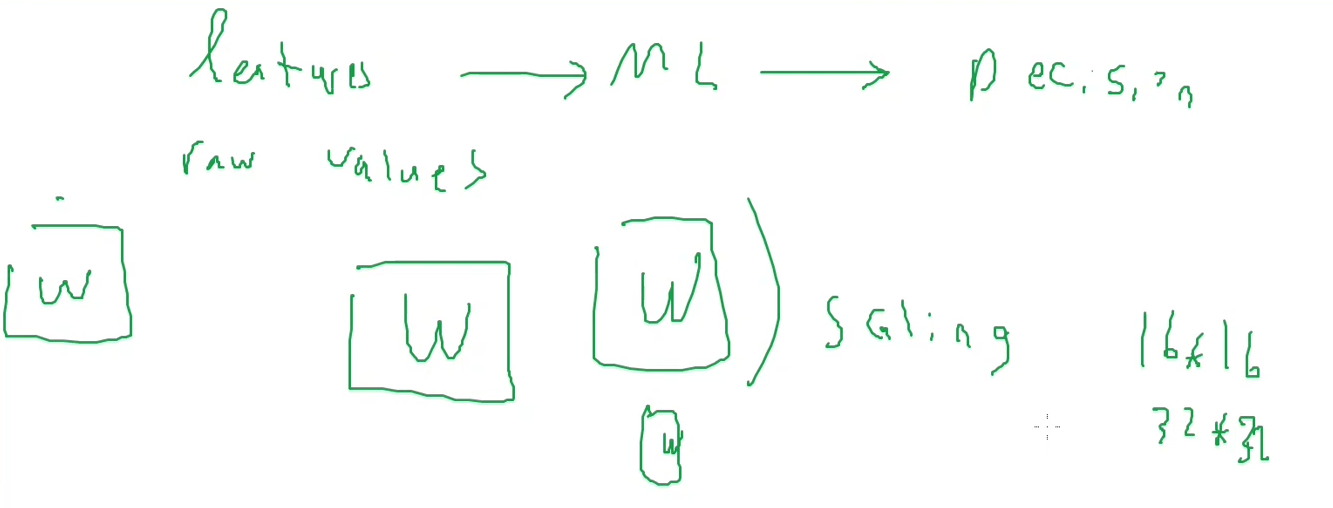 features → ML → Decision
raw values
W W W
Scaling 16*16
W 32*32